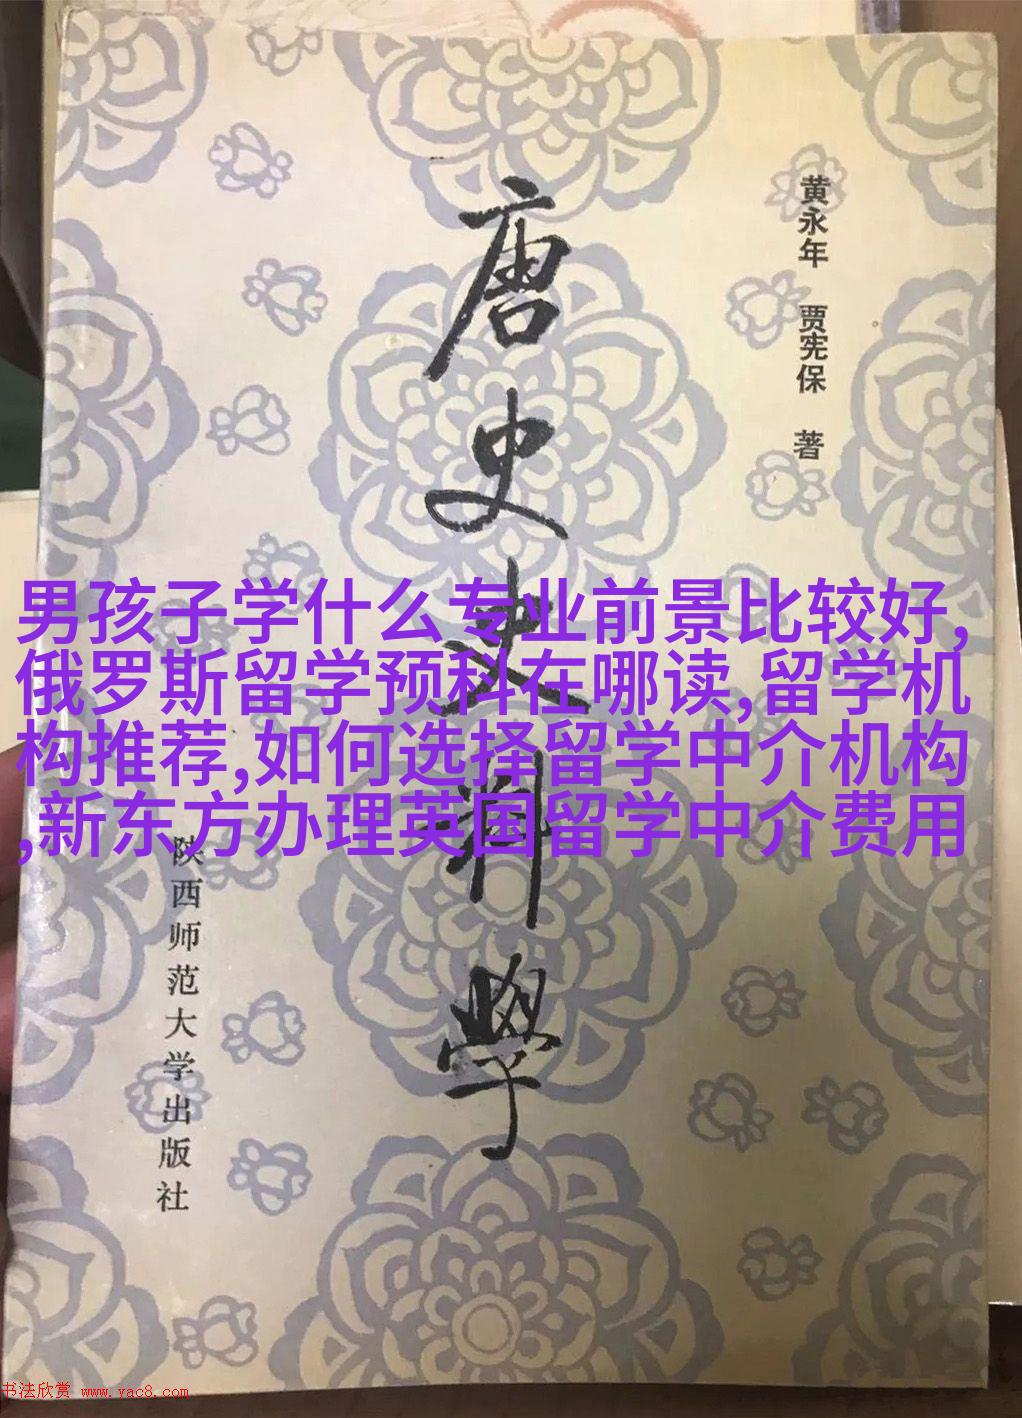 唐史史料学
黄永年 贾宪保 著
男孩子学什么专业前景比较好,
俄罗斯留学预科在哪读,留学机
构推荐,如何选择留学中介机构
,新东方办理英国留学中介费用
陕西师范大学出版社
书法欣赏 www.yac8.com